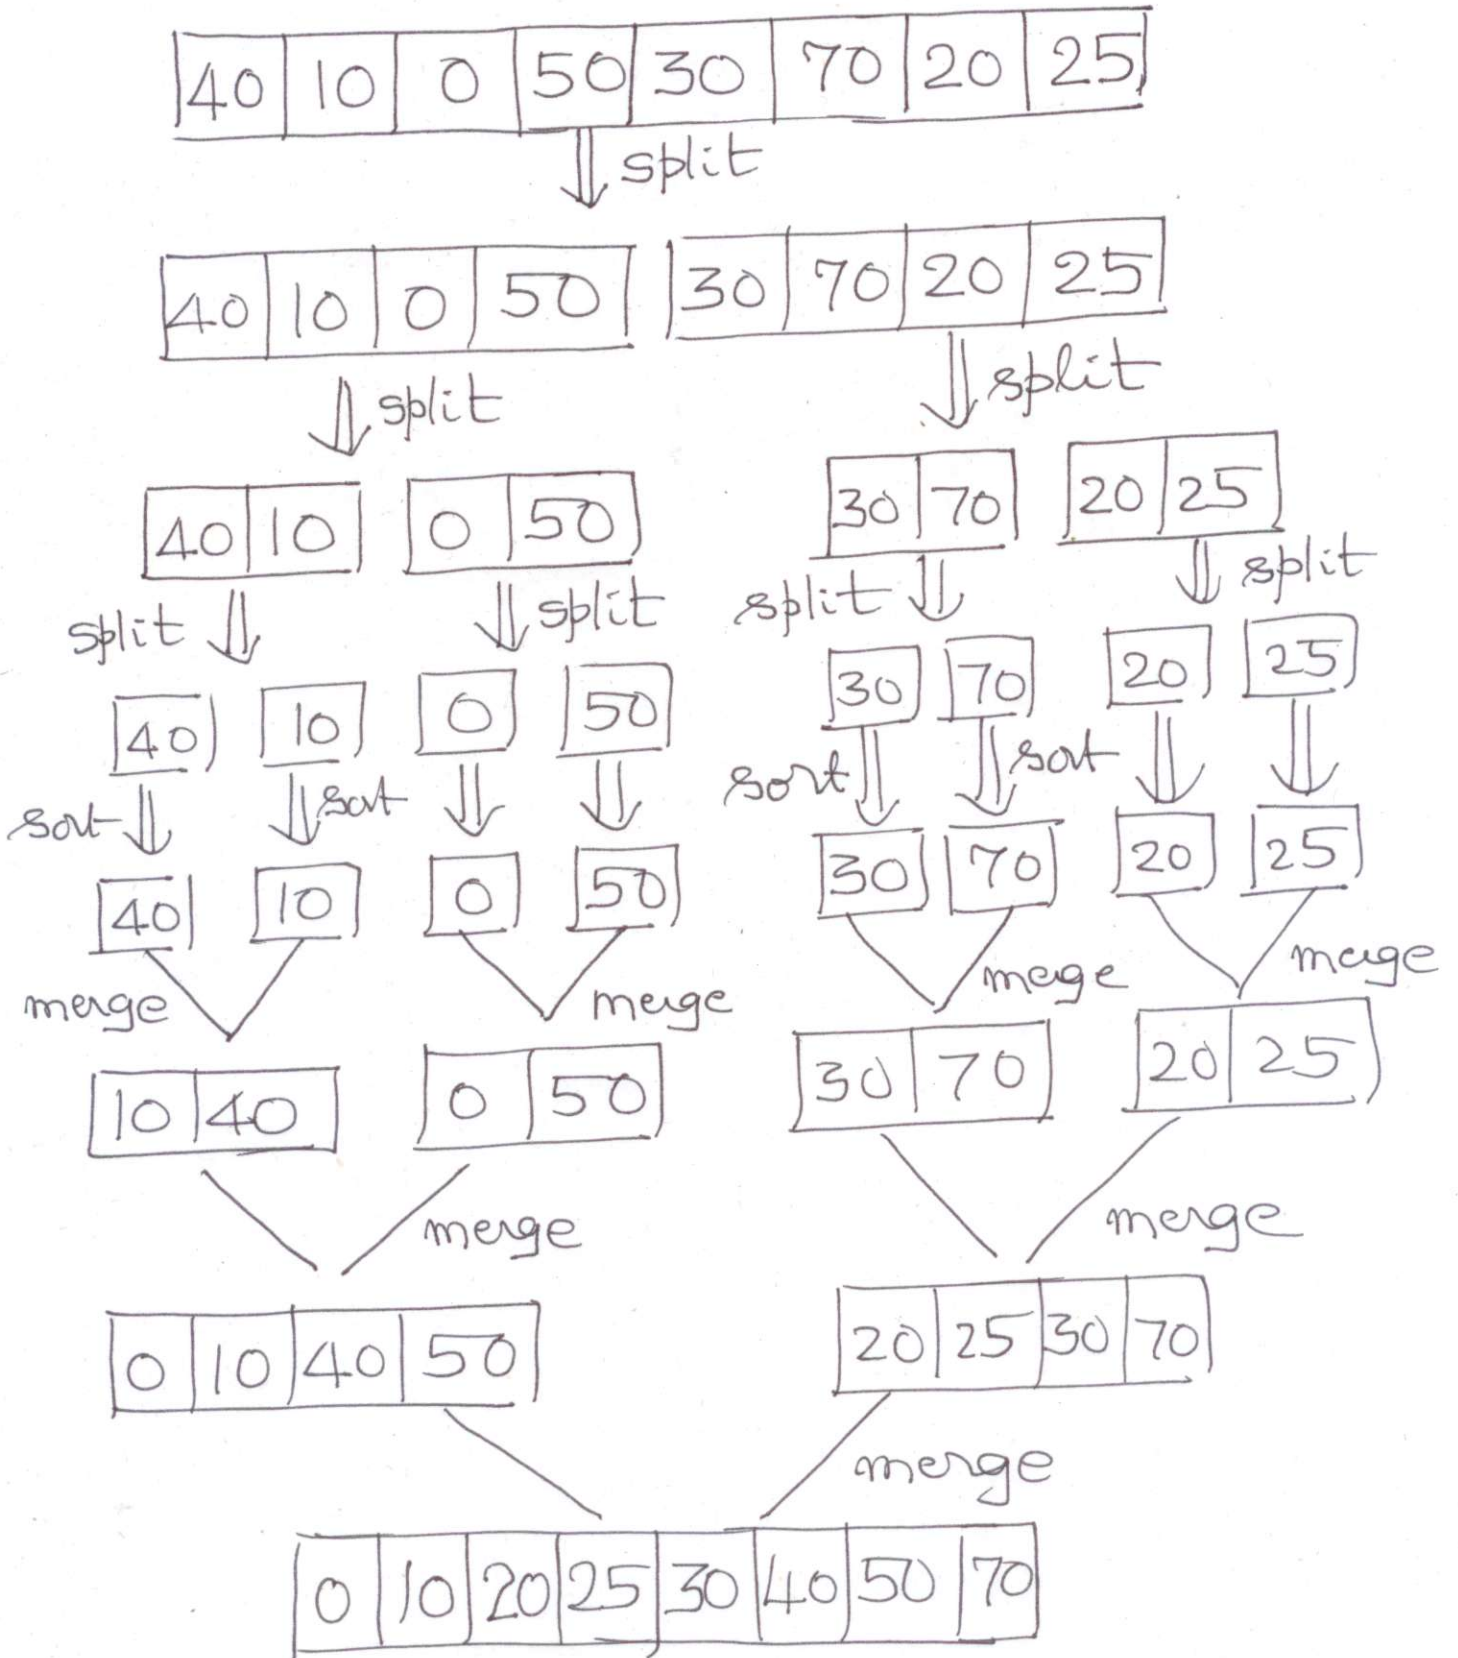 40 10 0 50 30 70 20 25
split
40 10 0 50 30 70 20 25
split split
40 10 0 50 30 70 20 25
split split split split
40 10 0 50 30 70 20 25
sort sort sort sort
40 10 0 50 30 70 20 25
merge merge merge merge
10 40 0 50 30 70 20 25
merge merge
0 10 40 50 20 25 30 70
merge
0 10 20 25 30 40 50 70